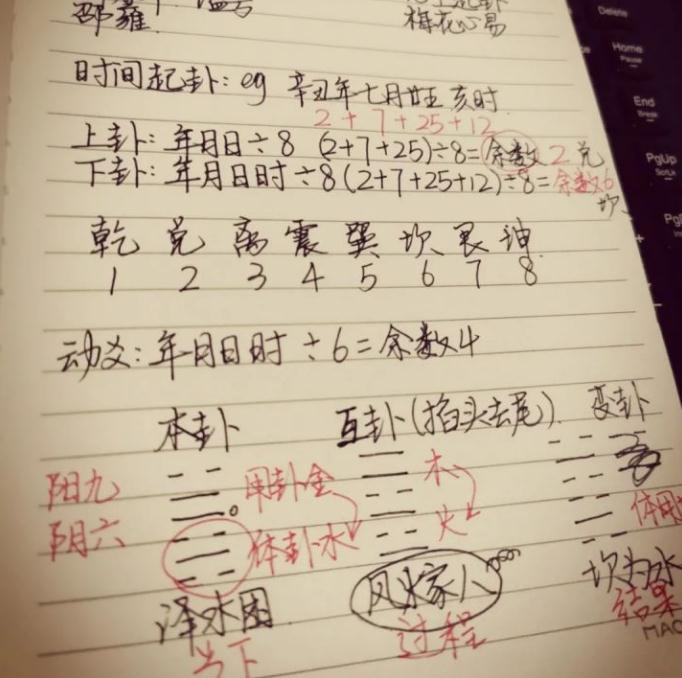 邵雍
梅花心易
Delete
Home
Pause
End
Break
PgUp
ScrLk
时间起卦: eg 辛丑年七月廿五 亥时
2 + 7 + 25 + 12
上卦: 年月日÷8 (2+7+25)÷8=余数 2 兑
下卦: 年月日时÷8 (2+7+25+12)÷8=余数6
坎
乾 兑 离 震 巽 坎 艮 坤
1 2 3 4 5 6 7 8
动爻: 年月日时 ÷6=余数4
本卦 互卦(掐头去尾) 变卦
阳九 用卦金 木
阴六 体卦水 火 体用
泽水困 风火家人 坎为水
当下 过程 结果
MAC